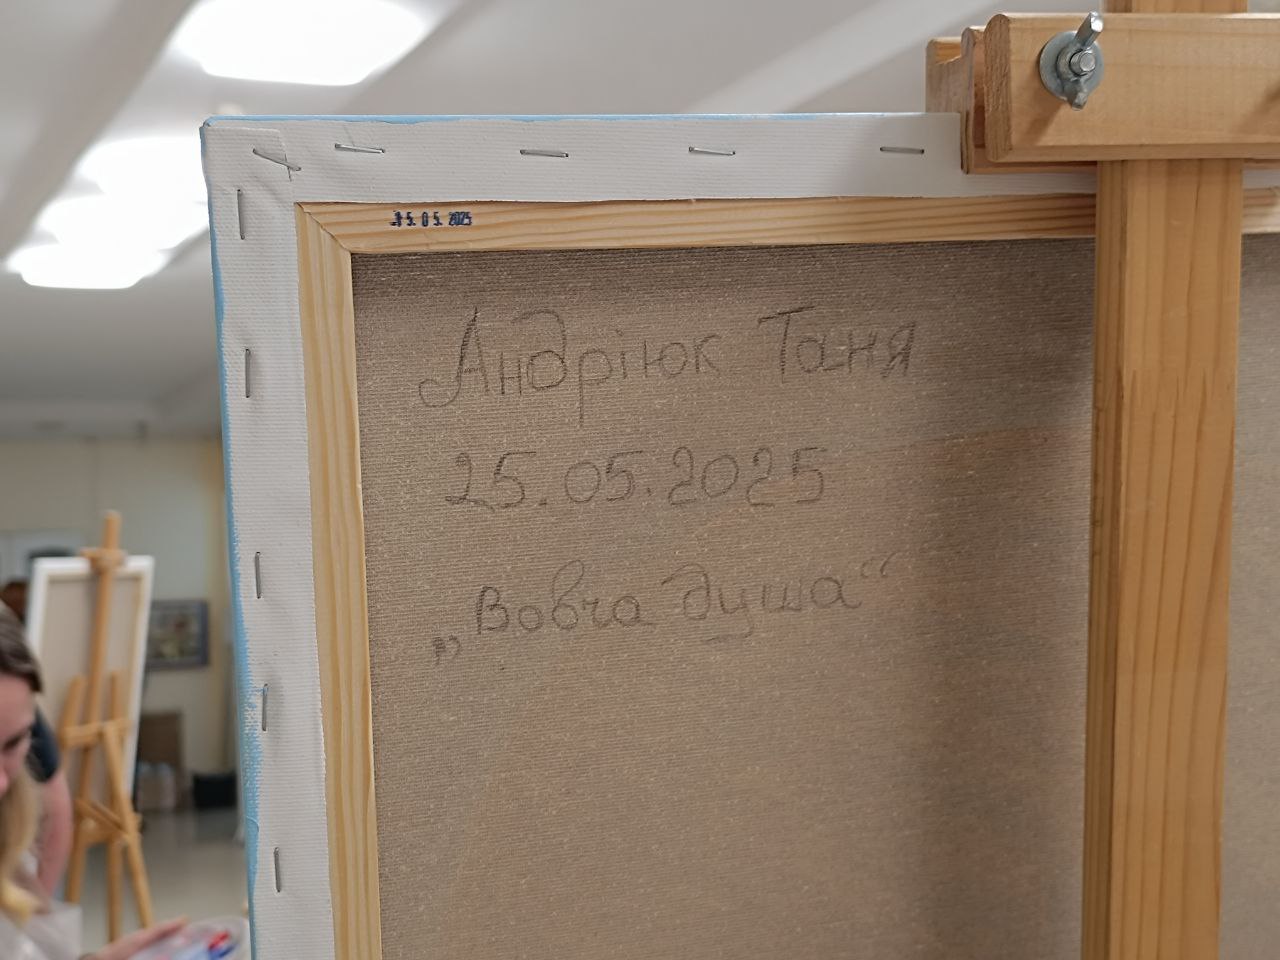 5.05.2025
Андріюк Таня
25.05.2025
„Вовча душа“